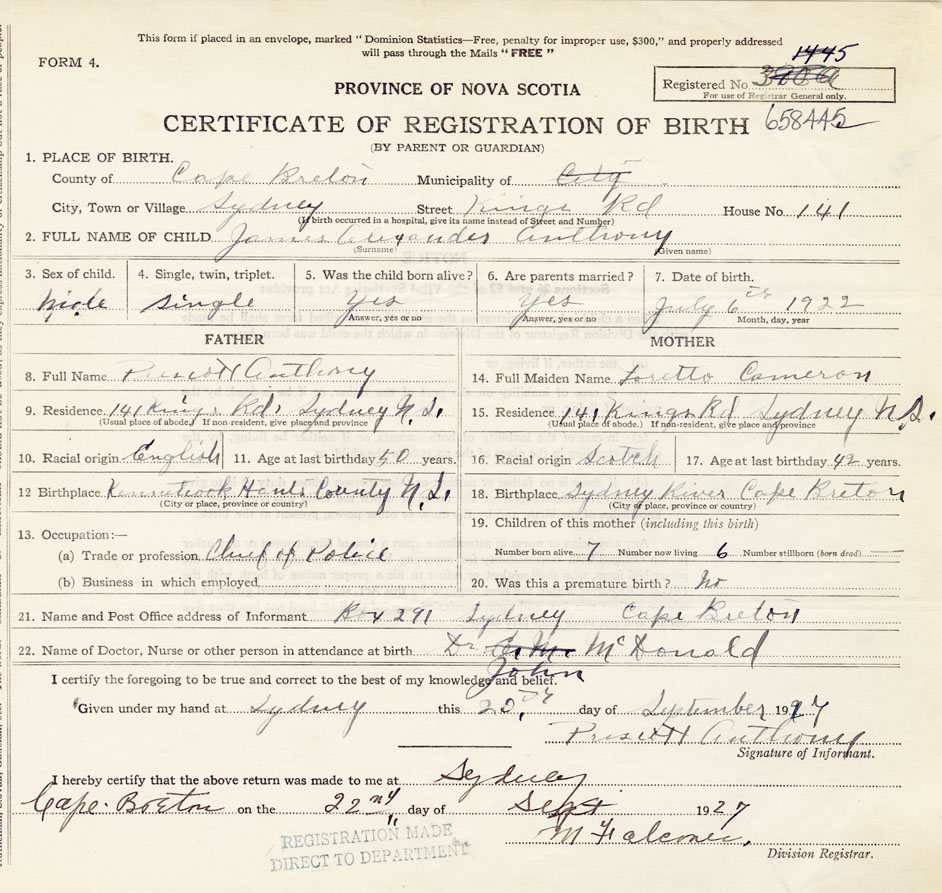 This form if placed in an envelope, marked "Dominion Statistics—Free, penalty for improper use, $300," and properly addressed
will pass through the Mails "FREE"
FORM 4.
1445
Registered No.
For use of Registrar General only.
PROVINCE OF NOVA SCOTIA
CERTIFICATE OF REGISTRATION OF BIRTH 658445
(BY PARENT OR GUARDIAN)
1. PLACE OF BIRTH.
County of Cape Breton Municipality of City
City, Town or Village Sydney Street Kings Rd House No. 141
(If birth occurred in a hospital, give its name instead of Street and Number)
2. FULL NAME OF CHILD James Alexander Anthony
(Surname) (Given name)
3. Sex of child. 4. Single, twin, triplet. 5. Was the child born alive? 6. Are parents married? 7. Date of birth.
Male single Yes Yes July 6th 1922
Answer, yes or no Answer, yes or no Month, day, year
FATHER MOTHER
8. Full Name Prescott Anthony 14. Full Maiden Name Loretto Cameron
9. Residence 141 Kings Rd. Sydney N.S. 15. Residence 141 Kings Rd Sydney N.S.
(Usual place of abode.) If non-resident, give place and province (Usual place of abode.) If non-resident, give place and province
10. Racial origin English 11. Age at last birthday 50 years. 16. Racial origin Scotch 17. Age at last birthday 42 years.
12 Birthplace Hants County N.S. 18. Birthplace Sydney River Cape Breton
(City or place, province or country) (City or place, province or country)
19. Children of this mother (including this birth)
13. Occupation:—
(a) Trade or profession Chief of Police Number born alive 7 Number now living 6 Number stillborn (born dead) —
(b) Business in which employed 20. Was this a premature birth? No
21. Name and Post Office address of Informant Box 291 Sydney Cape Breton
22. Name of Doctor, Nurse or other person in attendance at birth Dr McDonald
John
I certify the foregoing to be true and correct to the best of my knowledge and belief.
Given under my hand at Sydney this 20th day of September 1927
Prescott Anthony
Signature of Informant.
I hereby certify that the above return was made to me at Sydney
Cape Breton on the 22nd day of Sept 1927
M Falconer.
Division Registrar.
REGISTRATION MADE
DIRECT TO DEPARTMENT